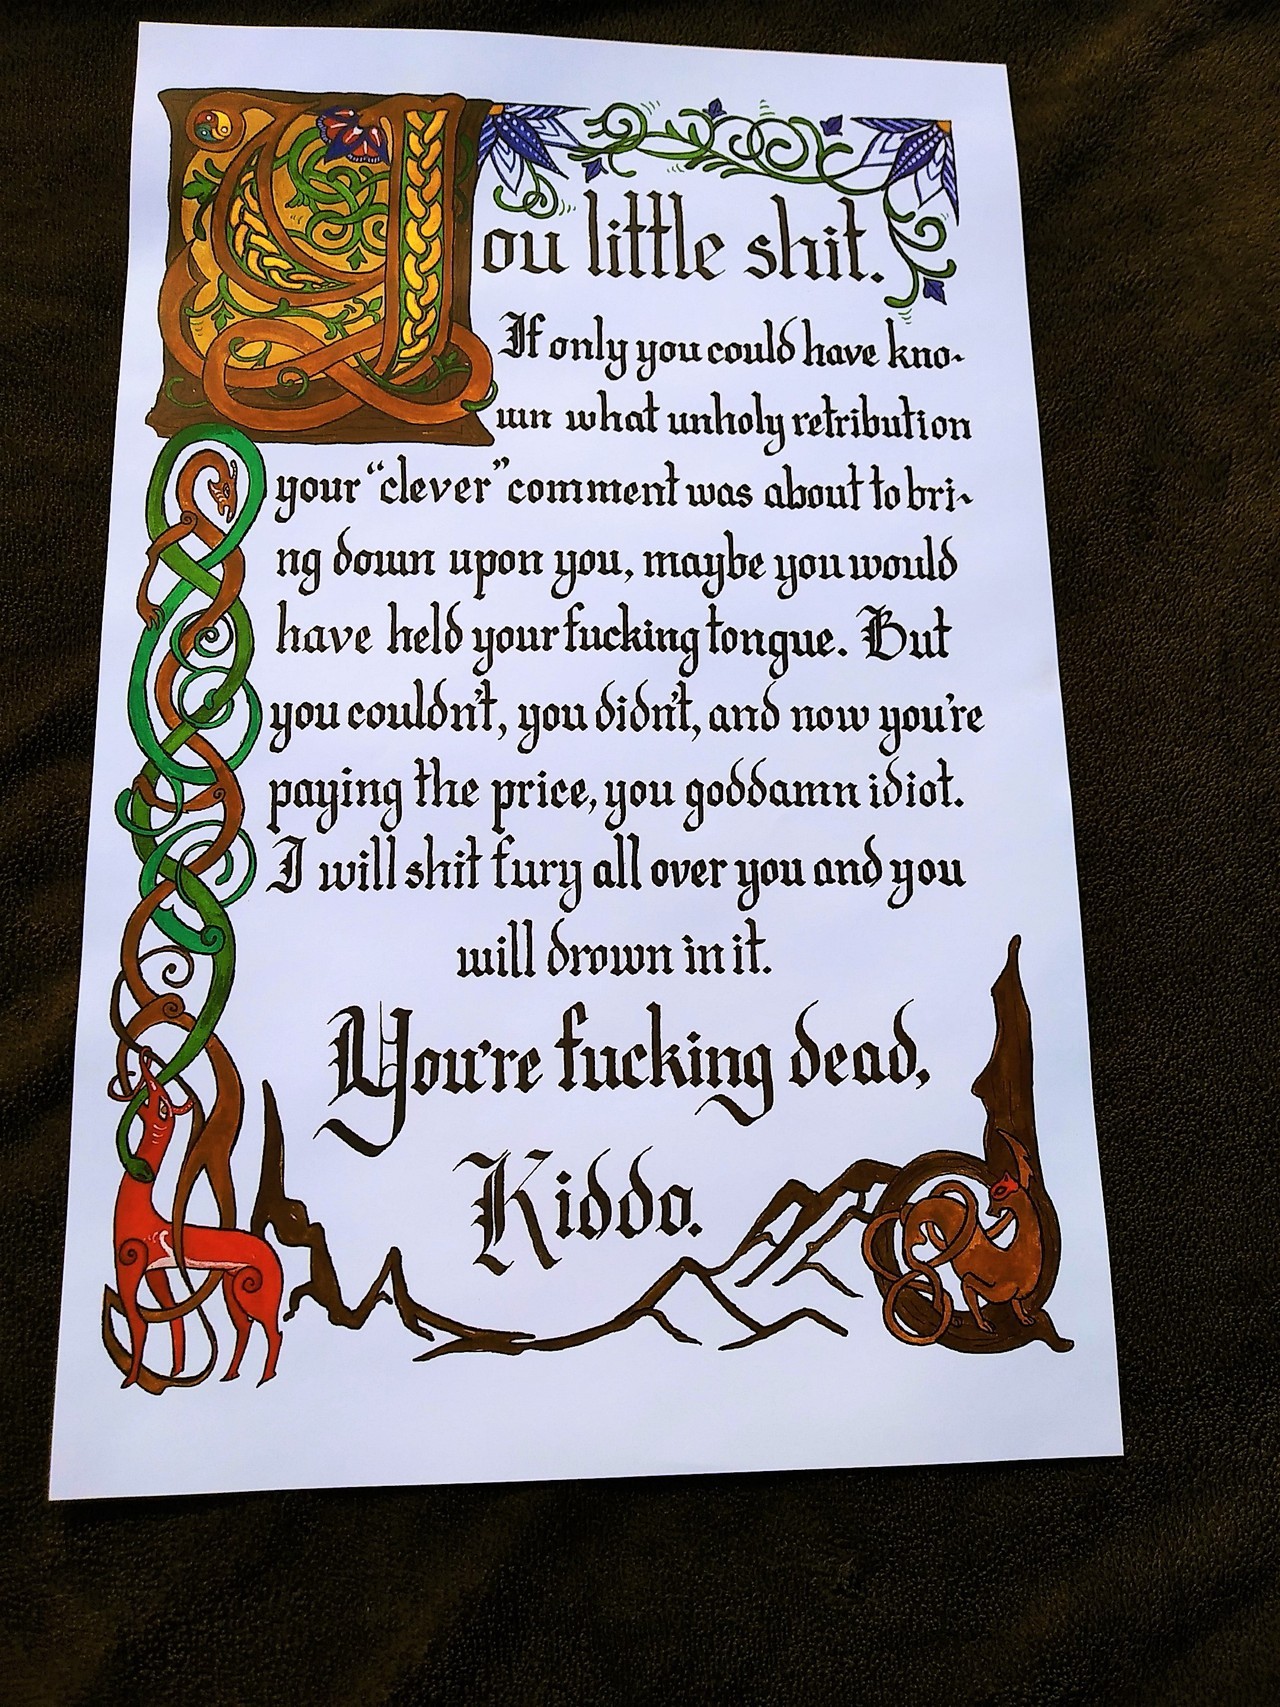 You little shit.
If only you could have kno-
wn what unholy retribution
your “clever” comment was about to bri-
ng down upon you, maybe you would
have held your fucking tongue. But
you couldn't, you didn't, and now you're
paying the price, you goddamn idiot.
I will shit fury all over you and you
will drown in it.
You're fucking dead,
Kiddo.